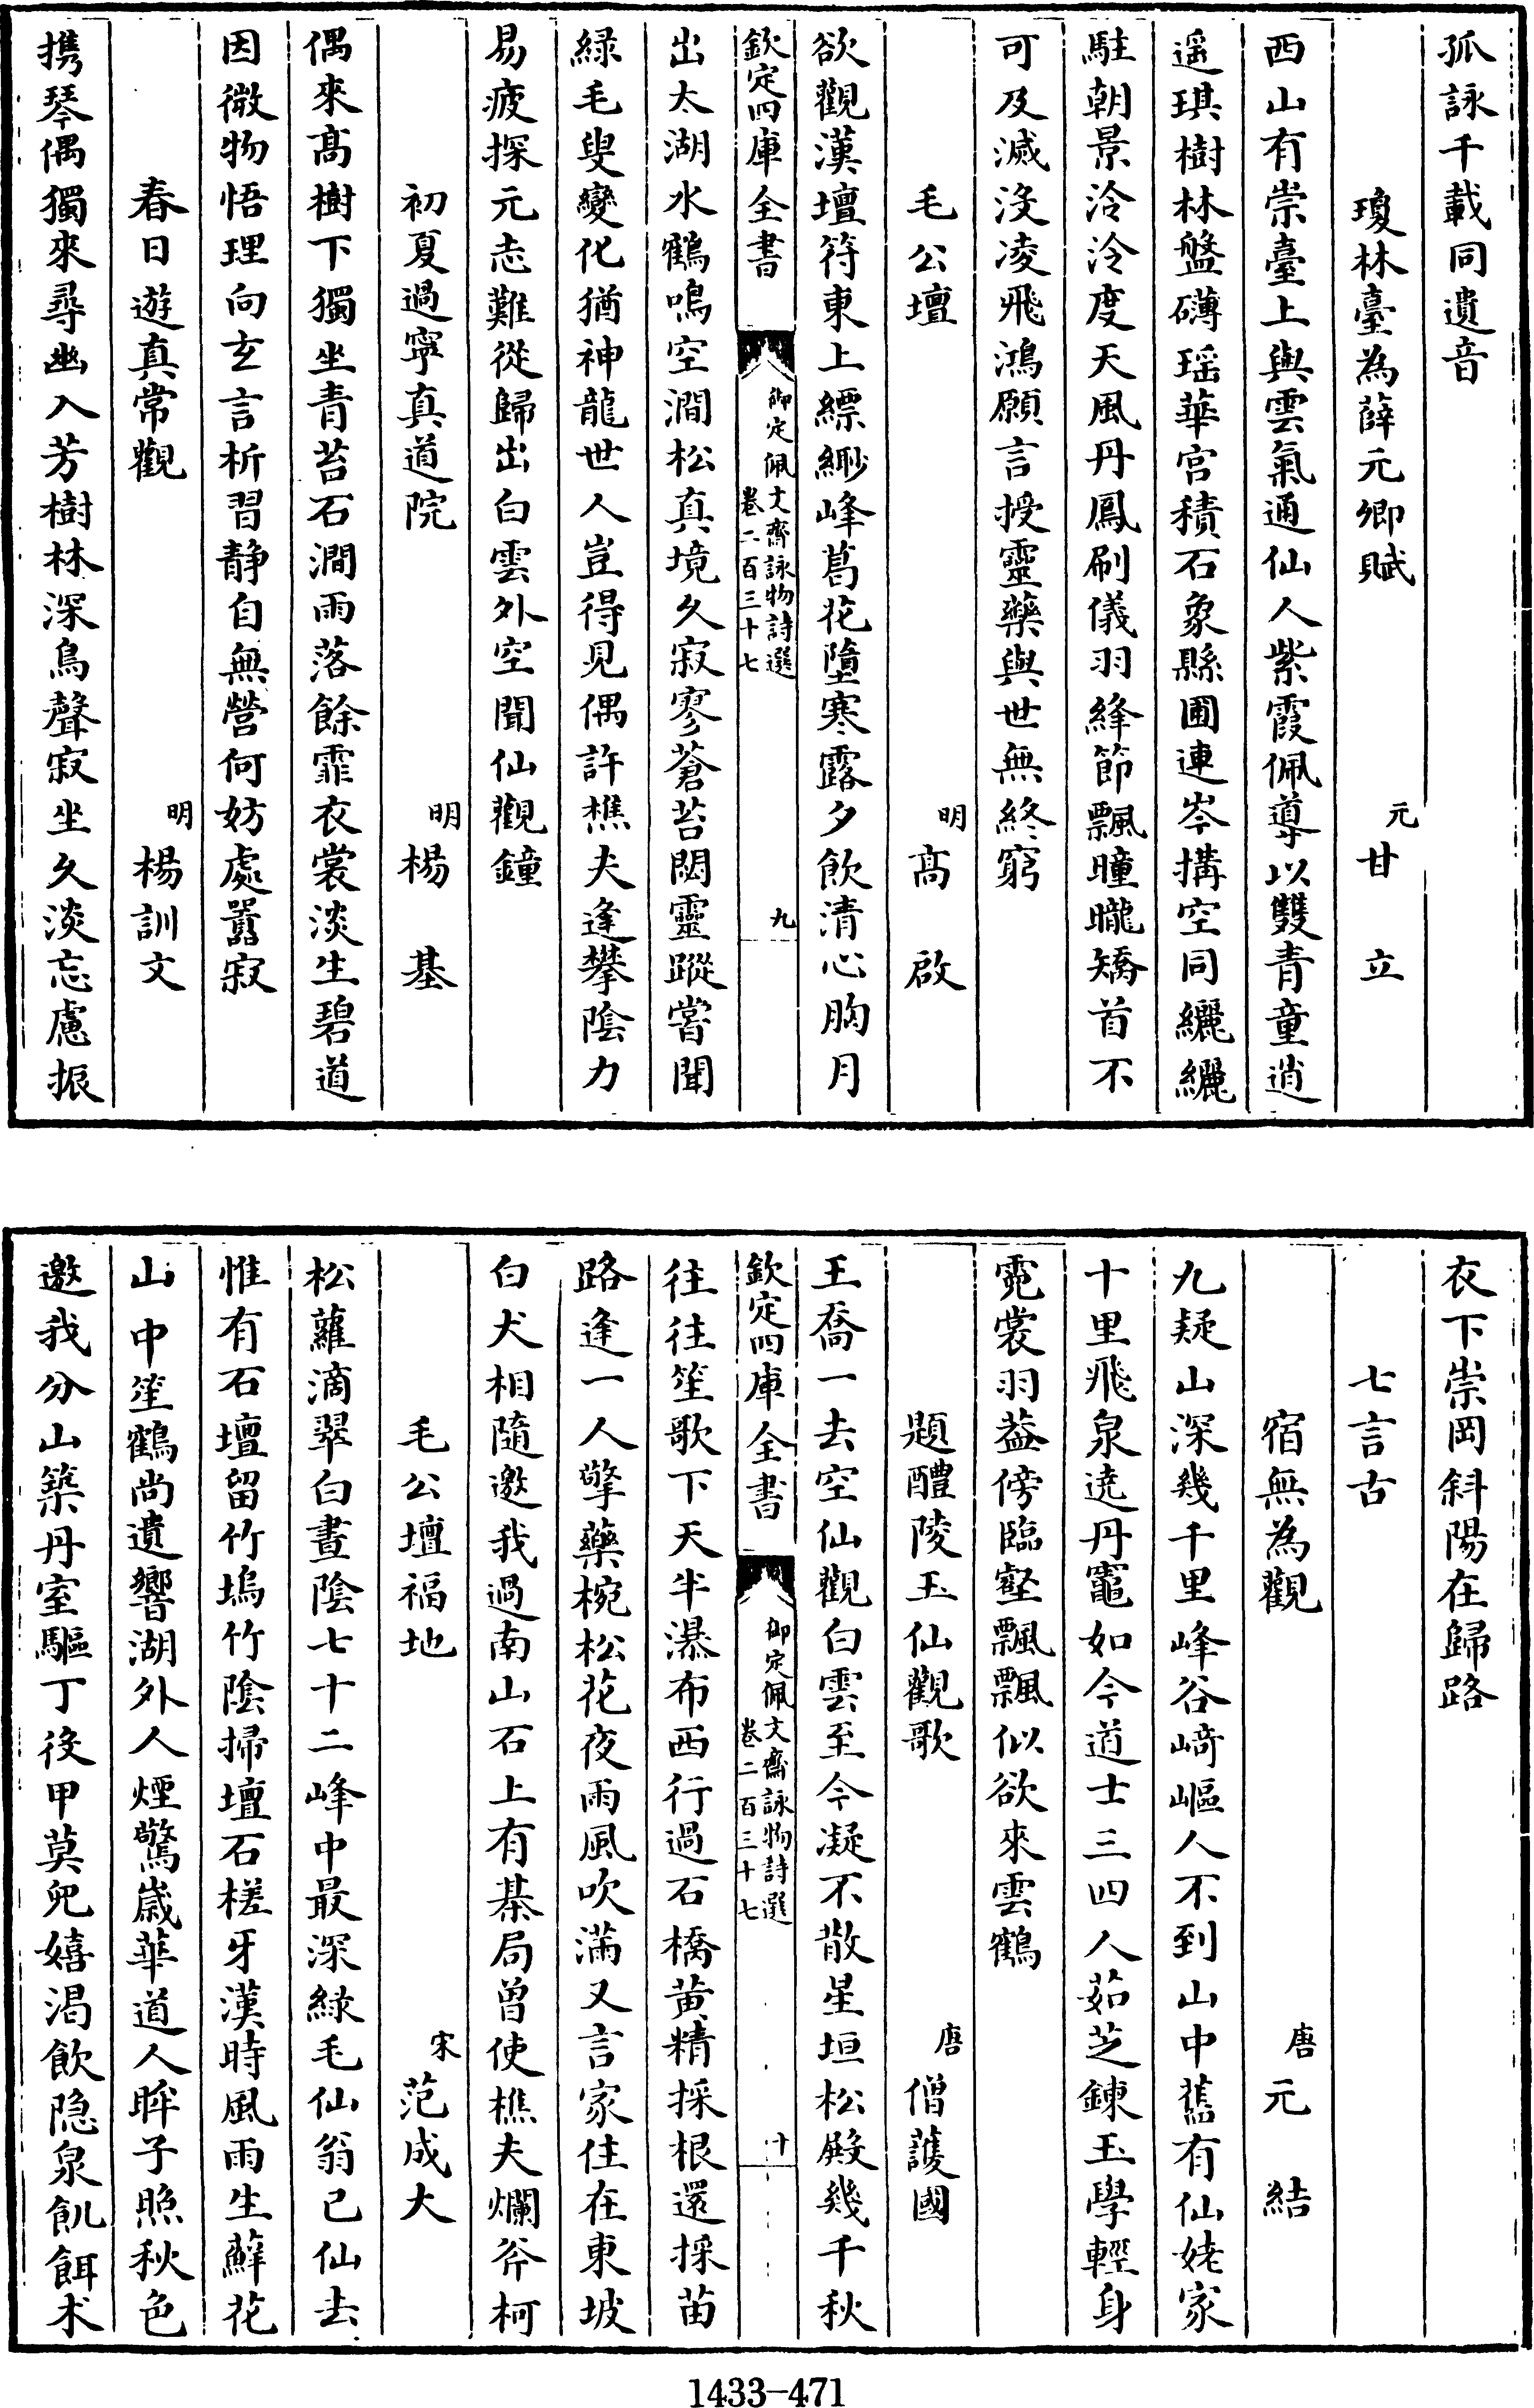 孤詠千載同遺音
瓊林臺為薛元卿賦　元甘立
西山有崇臺上與雲氣通仙人紫霞佩導以雙青童逍
遥琪樹林盤礴瑶華宫積石象縣圃連岑搆空同纚纚
駐朝景泠泠度天風丹鳳刷儀羽絳節飄曈曨矯首不
可及滅没凌飛鴻願言授靈藥與世無終窮
毛公壇　明高啟
欲觀漢壇符東上縹緲峰葛花墮寒露夕飲清心胸月
欽定四庫全書　御定佩文齋詠物詩選卷二百三十七　九
出太湖水鶴鳴空澗松真境久寂寥蒼苔閟靈蹤嘗聞
緑毛叟變化猶神龍世人豈得見偶許樵夫逢攀陰力
易疲探元志難從歸出白雲外空聞仙觀鐘
初夏過寧真道院　明楊基
偶來高樹下獨坐青苔石澗雨落餘霏衣裳淡生碧道
因微物悟理向玄言析習静自無營何妨處囂寂
春日遊真常觀　明楊訓文
攜琴偶獨來尋幽入芳樹林深鳥聲寂坐久淡忘慮振
衣下崇岡斜陽在歸路
七言古
宿無為觀　唐元結
九疑山深幾千里峰谷﨑嶇人不到山中舊有仙姥家
十里飛泉遶丹竈如今道士三四人茹芝鍊玉學輕身
霓裳羽葢傍臨壑飄飄似欲來雲鶴
題醴陵玉仙觀歌　唐僧護國
王喬一去空仙觀白雲至今凝不散星垣松殿幾千秋
欽定四庫全書　御定佩文齋詠物詩選卷二百三十七　十
往往笙歌下天半瀑布西行過石橋黄精採根還採苗
路逢一人擎藥椀松花夜雨風吹滿又言家住在東坡
白犬相隨邀我過南山石上有棊局曾使樵夫爛斧柯
毛公壇福地　宋范成大
松蘿滴翠白晝陰七十二峰中最深緑毛仙翁已仙去
惟有石壇留竹塢竹陰掃壇石槎牙漢時風雨生蘚花
山中笙鶴尚遺響湖外人煙驚嵗華道人眸子照秋色
邀我分山築丹室驅丁役甲莫兒嬉渴飲隐泉飢餌朮
1433-471